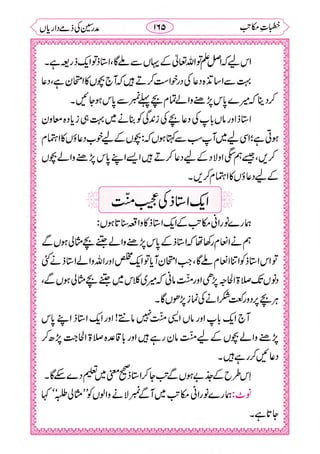 خطباتِ مکاتب
۱۶۵
مدرسین کی ذمے داریاں
اس لیے کہ اصل علم تو اللہ تعالیٰ کے یہاں سے ملے گا، استاذ تو ایک ذریعہ ہے۔
بہت سے اساتذہ دعا کی درخواست کرتے ہیں کہ آج بچوں کا امتحان ہے، دعا
کر دینا کہ میرے پاس پڑھنے والے تمام بچے پہلے نمبر سے پاس ہو جائیں۔
استاذ اور ماں باپ کی دعا بچے کی زندگی کو بنانے میں بہت ہی زیادہ معاون
ہوتی ہے؛ اسی لیے میں آپ سب سے کہتا ہوں کہ: بچوں کے لیے خوب دعاؤں کا اہتمام
کریں، جیسے ہم سگی اولاد کے لیے دعا کرتے ہیں ایسے اپنے پاس پڑھنے والے بچوں
کے لیے دعاؤں کا اہتمام کریں۔
ایک استاذ کی عجیب منّت
ہمارے نورانی مکاتب کے ایک استاذ کا واقعہ سناتا ہوں:
ہم نے انعام رکھا تھا کہ استاذ کے پاس پڑھنے والے جتنے بچے مثالی ہوں گے
تو اس استاذ کو اتنا انعام ملے گا، جب امتحان آیا تو ایک مخلص استاذ اور اللہ والے استاذ نے کئی
دنوں تک صلاۃ الحاجہ پڑھی اور منّت مانی کہ میری کلاس میں جتنے بچے مثالی ہوں گے،
ہر بچے پر دو رکعت شکرانے کی نماز پڑھوں گا۔
آج ایک باپ اور ماں ایسی منّت نہیں مانتے! اور ایک استاذ اپنے پاس
پڑھنے والے بچوں کے لیے منّت مان رہے ہیں اور باقاعدہ صلاۃ الحاجت پڑھ کر
دعائیں کر رہے ہیں۔
اِس طرح کے جذبے ہوں گے تب جا کر استاذ صحیح معنیٰ میں تعلیم دے سکے گا۔
نوٹ: ہمارے نورانی مکاتب میں آگے نمبر لانے والوں کو ”مثالی طلبہ“ کہا
جاتا ہے۔